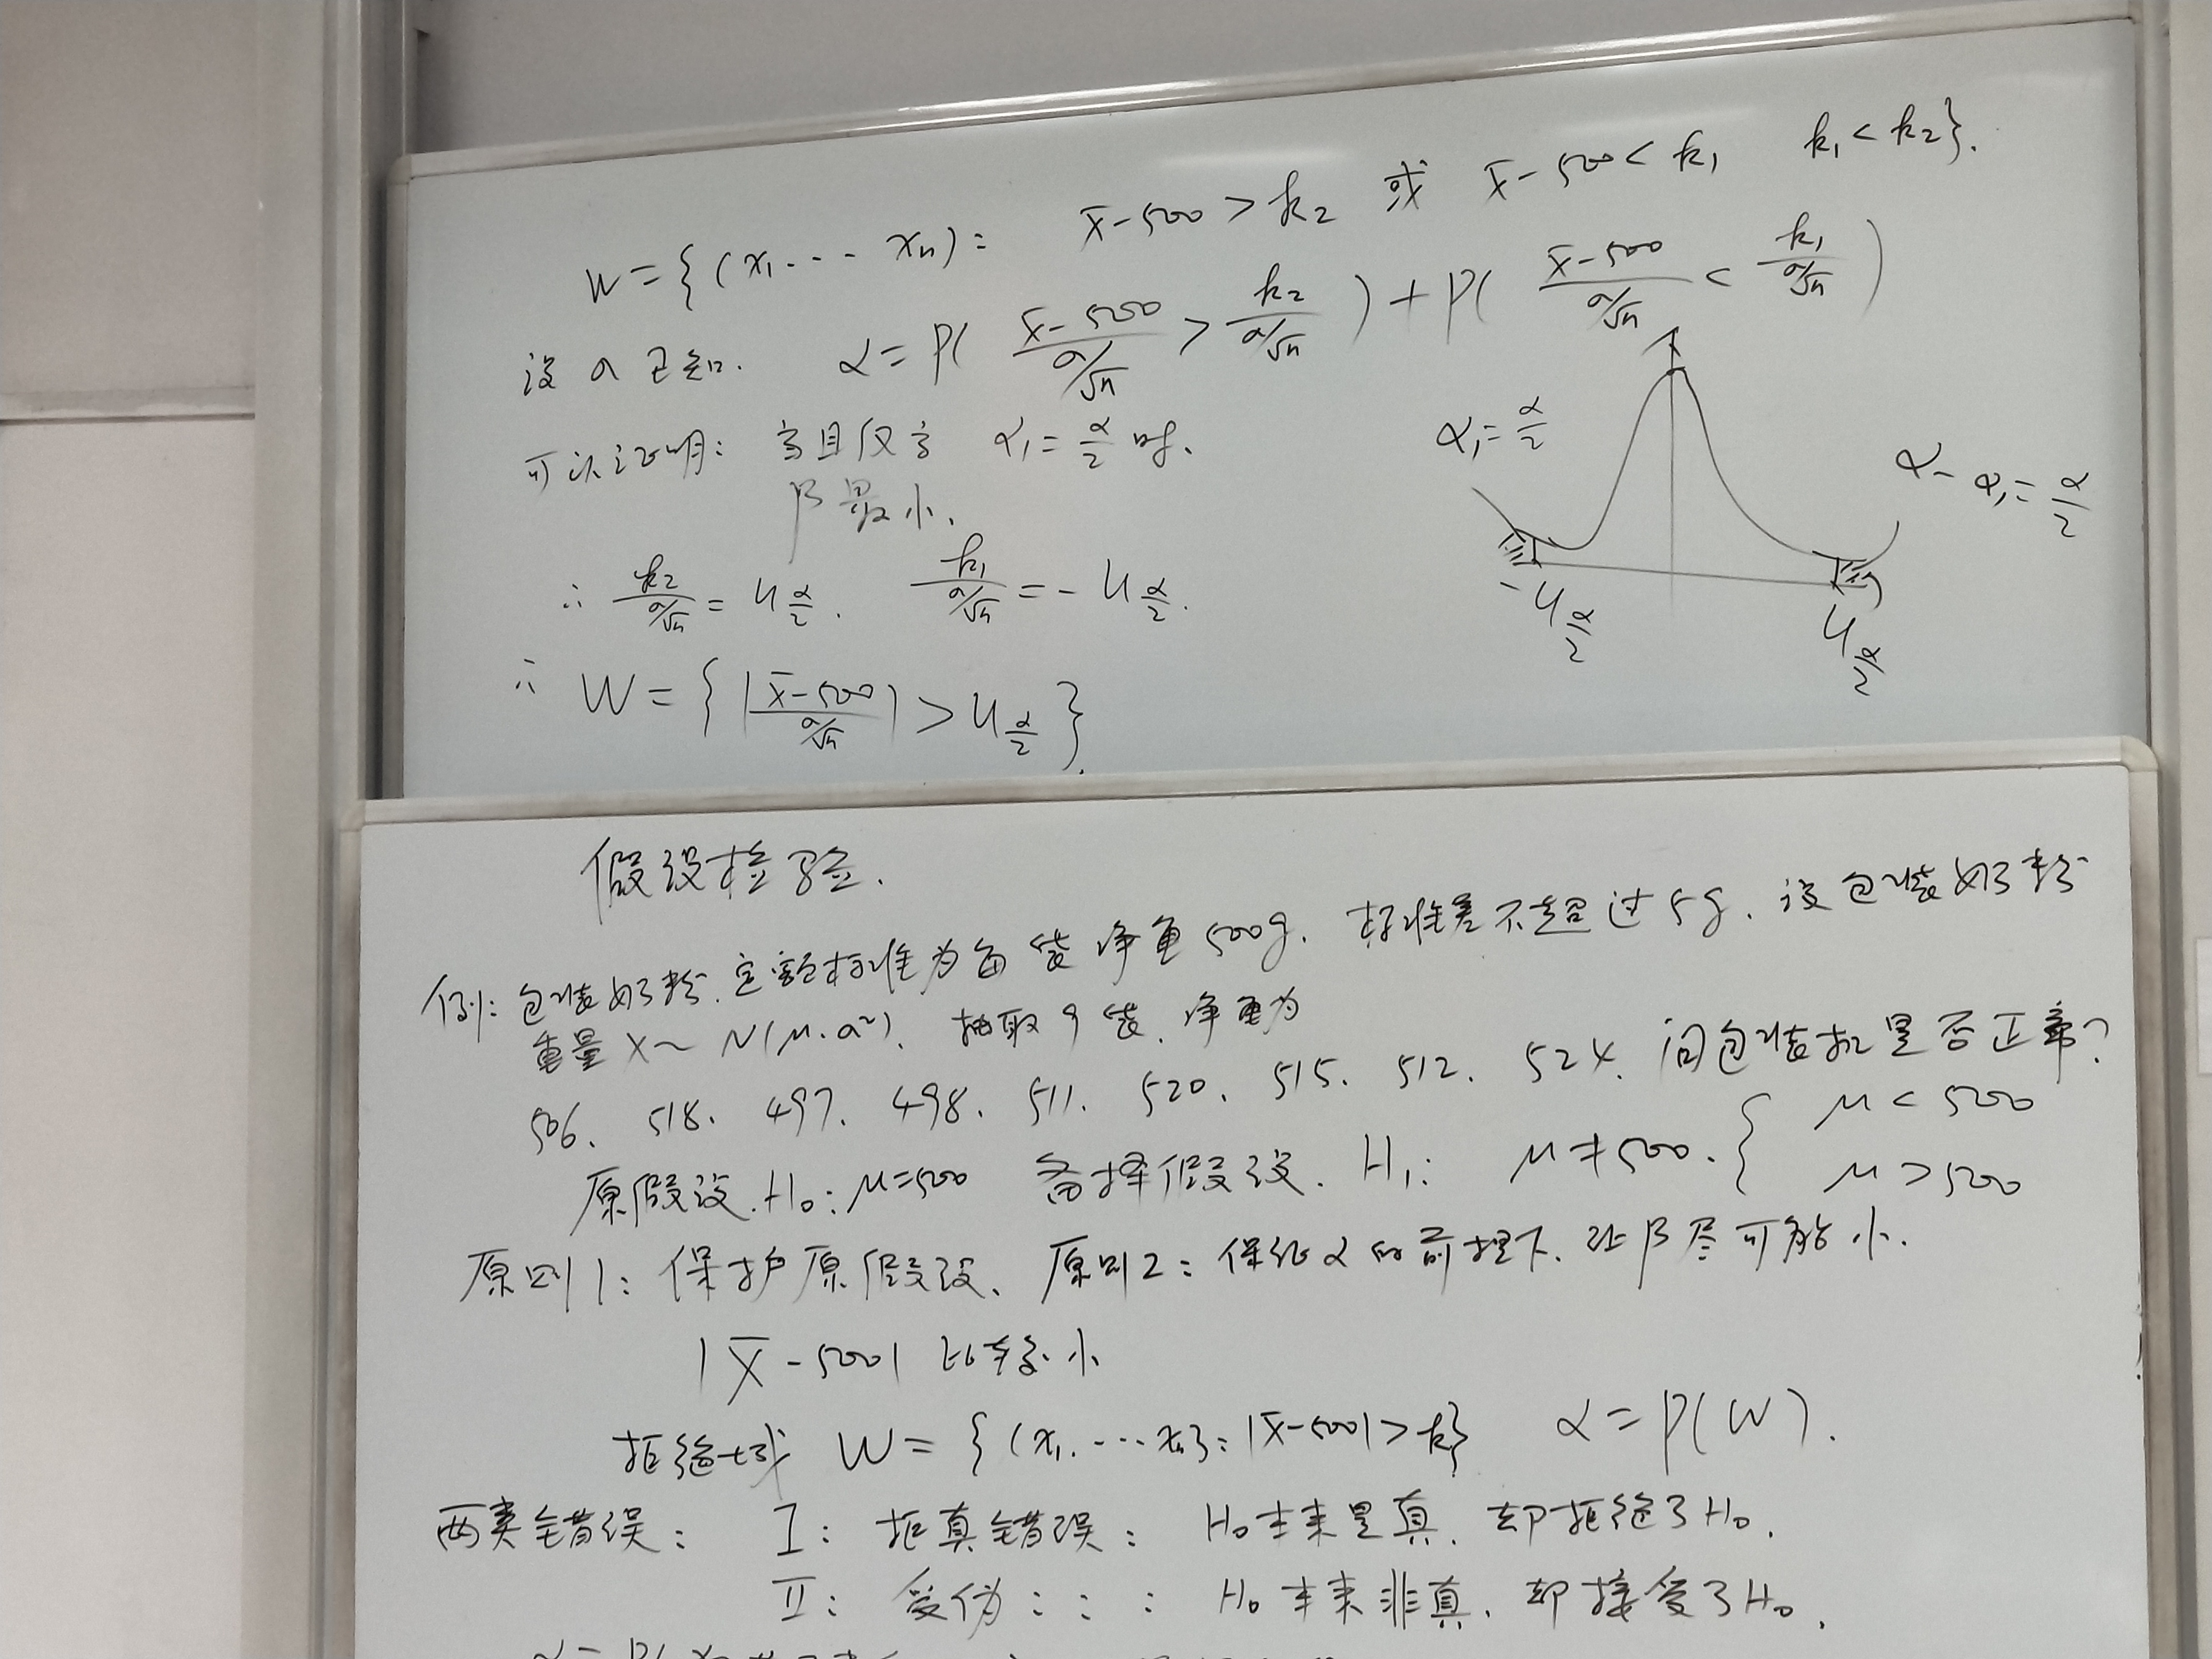 W={(x₁...xₙ): x̄-500>k₂ 或 x̄-500<k₁ k₁<k₂}.
设σ已知. α=P( (x̄-500)/(σ/√n) > k₂/(σ/√n) ) + P( (x̄-500)/(σ/√n) < k₁/(σ/√n) )
可以证明: 当且仅当 α₁=α/2 时.
β最小.
α₁=α/2
α-α₁=α/2
-u_{α/2}
u_{α/2}
∴ k₂/(σ/√n) = u_{α/2}. k₁/(σ/√n) = -u_{α/2}.
∴ W={ |(x̄-500)/(σ/√n)| > u_{α/2} }.
假设检验.
例: 包装奶粉. 定额标准为每袋净重500g. 标准差不超过5g. 设包装奶粉
重量 X~N(μ.σ²). 抽取9袋. 净重为
506. 518. 497. 498. 511. 520. 515. 512. 524. 问包装机是否正常?
原假设. H₀: μ=500 备择假设. H₁: μ≠500. { μ<500
μ>500
原则1: 保护原假设. 原则2: 保证α的前提下. 让β尽可能小.
|X̄-500| 比较小
拒绝域 W={(x₁....xₙ): |x̄-500|>k} α=P(W).
两类错误: I: 拒真错误: H₀本来是真. 却拒绝了H₀.
II: 受伪 : : : H₀本来非真. 却接受了H₀.